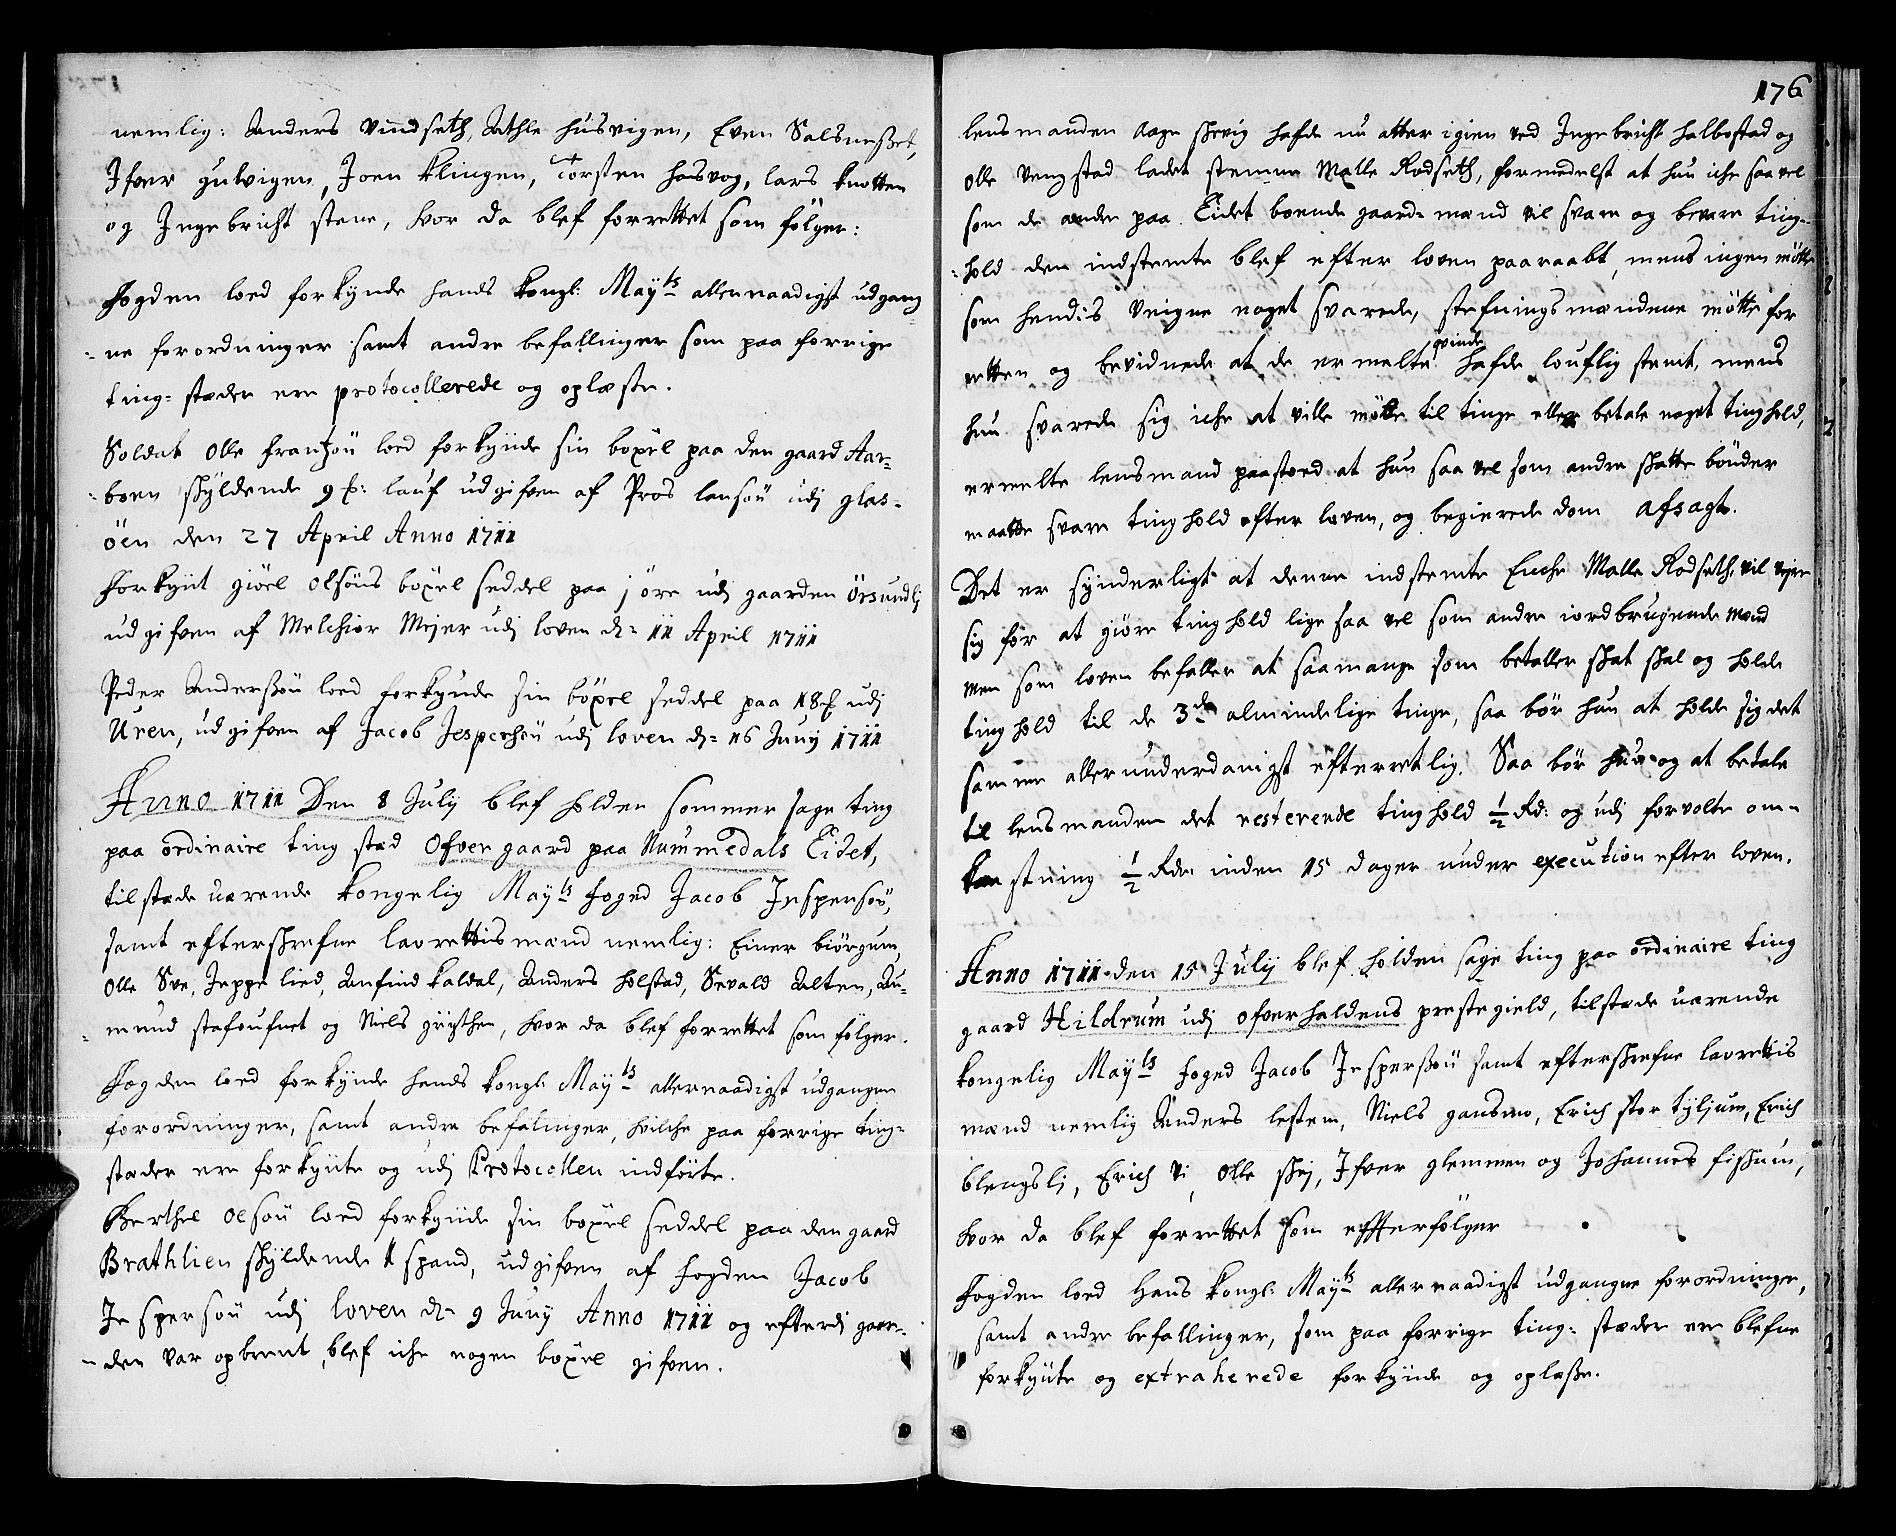 nemlig: Anders Vindseth, Athle husvigen, Even Salsnesset,
Ifver gutvigen, Joen Klingen, Torsten hasvog, lars knotten
og Ingebricht stene, hvor da blef forrettet som fölger:
Fogden loed forkynde hands kongl: Mayts allernaadigst udgang-
ne forordninger samt andre befallinger som paa forrige
ting-stæder ere protocollerede og oplæste.
Soldat Olle frantzön loed forkynde sin böxel paa den gaard Aar-
boen schÿldende 9 lauf udgifven af Pros lassön udj glas-
öen den 27 April Anno 1711
Forkynt giöel Olsöns böxel seddel paa j öre udj gaarden Örsundlj
udgifven af Melchior Mejer udj loven d= 11 April 1711
Peder Andersön loed forkynde sin böxel seddel paa 18 udj
Uren, udgifven af Jacob Jespersön udj loven d= 16 Junÿ 1711
Anno 1711 Den 8 Julÿ blef holden sommer sage ting
paa ordinaire ting stæd Ofvergaard paa Nummedals Eidet,
tilstæde uærende kongelig Mayts foged Jacob Jespersön,
samt efterschrefne laurettismænd nemlig: Einer biörgum,
Olle Sve, Jeppe lied, Anfind kaldal, Anders holstad, Sevald Alten, Au-
mund stafoufnet og Niels, hvor da blef forrettet som fölger.
Fogden loed forkÿnde hands kongl: Maÿts allernaadigst udgangen
forordninger, samt andre befalinger, hvilche paa forrige ting-
stæder ere forkÿnte og udj Protocollen indförte.
Berthel Olsön loed forkÿnde sin böxel seddel paa den gaard
Brathlien schÿldende 1 spand, udgifven af fogden Jacob
Jespersön udj loven d= 9 Junÿ Anno 1711 og efterdj gaar-
den var opbrent, blef iche nogen böxel gifven.
176
lensmanden Aage schevig hafde nu atter igien ved Ingebricht halbostad og
Olle Vengstad ladet stemme Malle Rodseth, formedelst at hun iche saa vel
som de andre paa Eidet boende gaardmænd vil svare og bevare ting-
hold den indstemte blef efter loven paaraabt, mens ingen mötte
som hendis veigne noget svarede, stefningsmændene mötte for
retten og bevidnede at de ermelte qvinde hafde louflig stemt, mens
hun svarede sig iche at ville mötte til tinge eller betale noget tinghold,
ermelte lensmand paastoed at hun saa vel som andre schatte bönder
maatte svare tinghold efter loven, og begierede dom afsagt.
Det er synderligt at denne indstemte Enche Malle Rodseth, vil veire
sig for at giöre tinghold lige saa vel som andre iordbrugende mænd
Men som loven befaller at saamange som betaller schat schal og holde
tinghold til de 3de almindelige tinge, saa bör hun at holde sig det
samme allerunderdanigst efterretlig. Saa bör hun og at betale
til lensmanden det resterende tinghold ½ Rd: og udj forvolte om-
kaastning ½ Rdr inden 15 dager under execution efter loven.
Anno 1711 den 15 Julÿ blef holden sage ting paa ordinaire ting
gaard Hildrum udj Ofverhaldens prestegield, tilstæde uærende
kongelig Maÿts foged Jacob Jespersön samt efterschrefne laurettis
mænd nemlig Anders lestem, Niels gansmo, Erich stor tÿljum, Erich
blengslj, Erich Vi, Olle schej, Ifver glemmen og Johannes fischum,
hvor da blef forrettet som effterfölger
Fogden loed Hans kongl: Maÿts allernaadigst udgangne forordninger,
samt andre befallinger, som paa forrige ting-stæder ere blefne
forkÿnte og extraherede forkÿnde og oplæse.